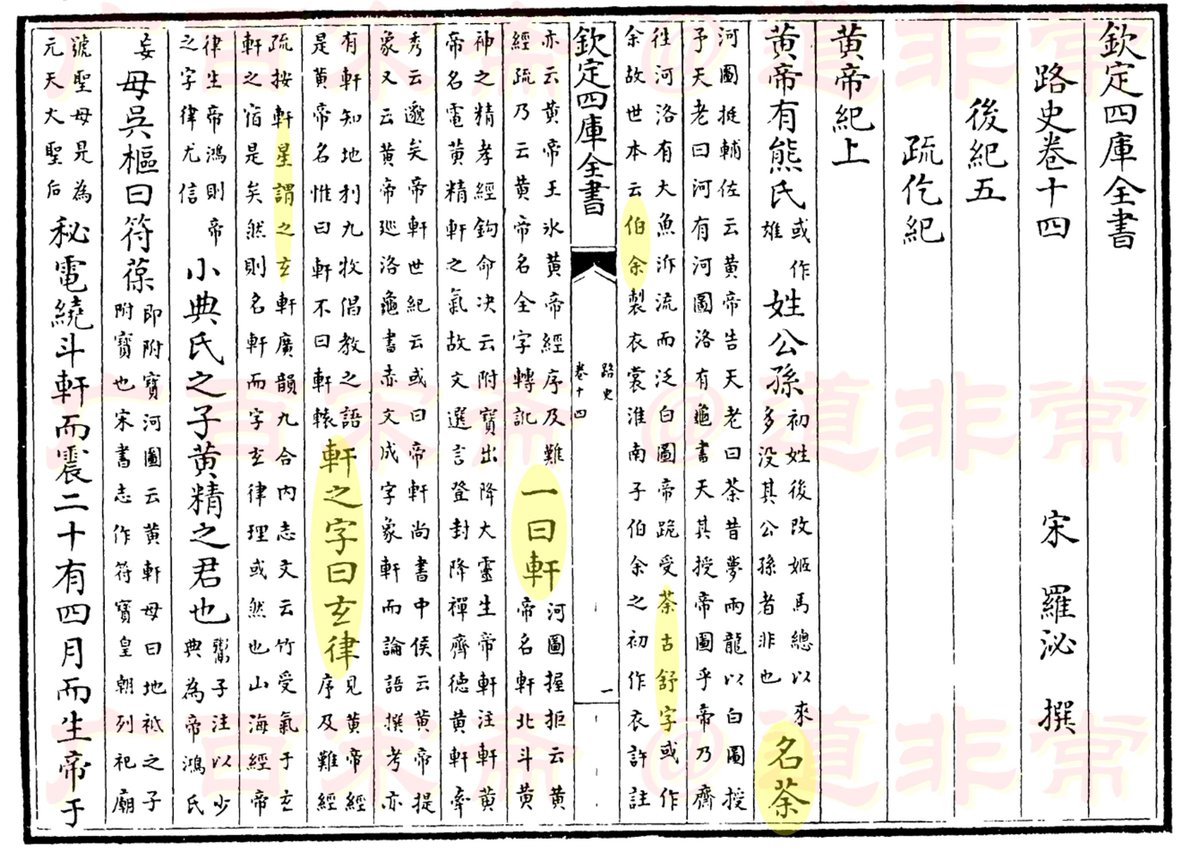 欽定四庫全書
路史卷十四 宋 羅泌 撰
後紀五
疏仡紀
黄帝紀上
黄帝有熊氏 或作雄 姓公孫 初姓後改姬馬總以來多没其公孫者非也 名荼
河圖挺輔佐云黄帝告天老曰荼昔夢兩龍以白圖授
予天老曰河有河圖洛有龜書天其授帝圖乎帝乃齊
徃河洛有大魚泝流而泛白圖帝跪受荼古舒字或作
余故世本云伯余製衣裳淮南子伯余之初作衣許註
欽定四庫全書
路史
卷十四
一
亦云黄帝王氷黄帝經序及難
經疏乃云黄帝名全字轉訛 一曰軒 河圖握拒云黄帝名軒北斗黄
神之精孝經鉤命决云附寶出降大靈生帝軒注軒黄
帝名電黄精軒之氣故文選言登封降禪齊德黄軒牽
秀云邈矣帝軒世紀云或曰帝軒尚書中侯云黄帝提
象又云黄帝廵洛龜書赤文成字象軒而論語撰考亦
有軒知地利九牧倡教之語
是黄帝名惟曰軒不曰軒轅 軒之字曰玄律 見黄帝經序及難經
疏按軒星謂之玄軒廣韻九合内志文云竹受氣于玄
軒之宿是矣然則名軒而字玄律理或然也山海經帝
律生帝鴻則帝
之字律尤信 小典氏之子黄精之君也 鬻子注以少典為帝鴻氏
妄 母吳樞曰符葆 即附寶河圖云黄軒母曰地祇之子附寶也宋書志作符寶皇朝列祀廟
號聖母是為
元天大聖后 秘電繞斗軒而震二十有四月而生帝于
@道非常
@道非常
@道非常